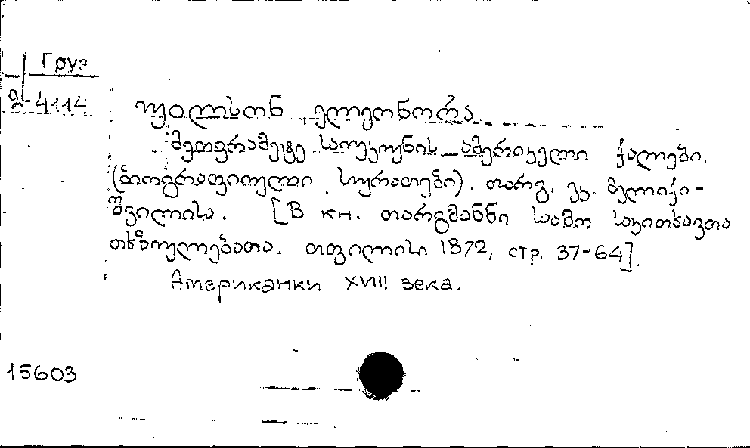 Груз
გ-4114
უილსონ ელეონორა
მეთვრამეტე საუკუნის ამერიკელი ქალები.
(ბიოგრაფიული სურათები). თარგ. ეკ. მელიქი-
შვილისა. [В кн. თარგმანნი სამო საკითხავთა
თხზულებათა. თფილისი 1872, стр. 37-64].
Американки XVIII века.
15603